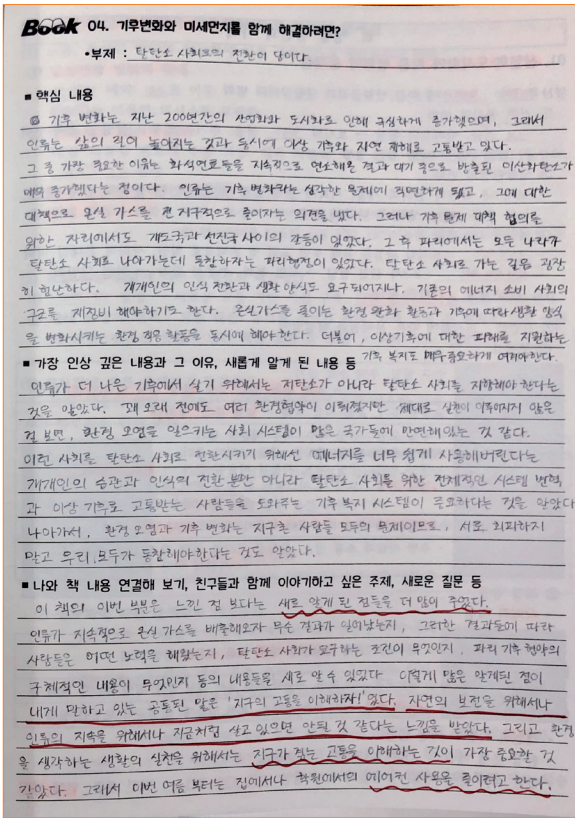 Book 04. 기후변화와 미세먼지를 함께 해결하려면?
•부제 : 탈탄소 사회로의 전환이 답이다.
■ 핵심 내용
기후 변화는 지난 200년간의 산업화와 도시화로 인해 급심하게 증가했으며, 그래서
인류는 삶의 질이 높아지는 것과 동시에 이상 기후와 자연 재해로 고통받고 있다.
그 중 가장 중요한 이유는 화석연료들을 지속적으로 연소해온 결과 대기 중으로 방출된 이산화탄소가
매우 증가했다는 점이다. 인류는 기후 변화라는 심각한 문제에 직면하게 됐고, 그에 대한
대책으로 온실 가스를 전 지구적으로 줄이자는 의견을 냈다. 그러나 기후 문제 대책 협의를
위한 자리에서도 개도국과 선진국 사이의 갈등이 있었다. 그 후 파리에서는 모든 나라가
탈탄소 사회로 나아가는데 동참하자는 파리협정이 있었다. 탈탄소 사회로 가는 길음 굉장
히 험난하다. 개개인의 인식 전환과 생활 양식도 요구되어지나. 기존의 에너지 소비 사회의
구조를 재정비 해야하기도 한다. 온실가스를 줄이는 환경 완화 활동과 기후에 따라 생활 양식
을 변화시키는 환경 적응 활동을 동시에 해야 한다. 더불어, 이상기후에 대한 피해를 지원하는
기후 복지도 매우 중요하게 여겨야한다.
■ 가장 인상 깊은 내용과 그 이유, 새롭게 알게 된 내용 등
인류가 더 나은 기후에서 살기 위해서는 저탄소가 아니라 탈탄소 사회를 지향해야 한다는
것을 알았다. 꽤 오래 전에도 여러 환경협약이 이뤄졌지만 제대로 실천이 이루어지지 않은
걸 보면, 환경 오염을 일으키는 사회 시스템이 많은 국가들에 만연해있는 것 같다.
이런 사회를 탈탄소 사회로 전환시키기 위해선 에너지를 너무 쉽게 사용해버린다는
개개인의 습관과 인식의 전환 뿐만 아니라 탈탄소 사회를 위한 전체적인 시스템 변혁
과 이상 기후로 고통받는 사람들을 도와주는 기후 복지 시스템이 중요하다는 것을 알았다
나아가서, 환경 오염과 기후 변화는 지구촌 사람들 모두의 문제이므로, 서로 회피하지
말고 우리 모두가 동참해야한다는 것도 알았다.
■ 나와 책 내용 연결해 보기, 친구들과 함께 이야기하고 싶은 주제, 새로운 질문 등
이 책의 이번 부분은 느낀 점 보다는 새로 알게 된 점들을 더 많이 주었다.
인류가 지속적으로 온실 가스를 배출해오자 무슨 결과가 일어났는지, 그러한 결과들에 따라
사람들은 어떤 노력을 해왔는지, 탈탄소 사회가 요구하는 조건이 무엇인지, 파리 기후 협약의
구체적인 내용이 무엇인지 등의 내용들을 새로 알 수 있었다 이렇게 많은 알게된 점이
내게 말하고 있는 공통된 말은 '지구의 고통을 이해하자!'였다. 자연의 보전을 위해서나
인류의 지속을 위해서나 지금처럼 살고 있으면 안될 것 같다는 느낌을 받았다. 그리고 환경
을 생각하는 생활의 실천을 위해서는 지구가 겪는 고통을 이해하는 것이 가장 중요할 것
같았다. 그래서 이번 여름 부터는 집에서나 학원에서의 에어컨 사용을 줄이려고 한다.